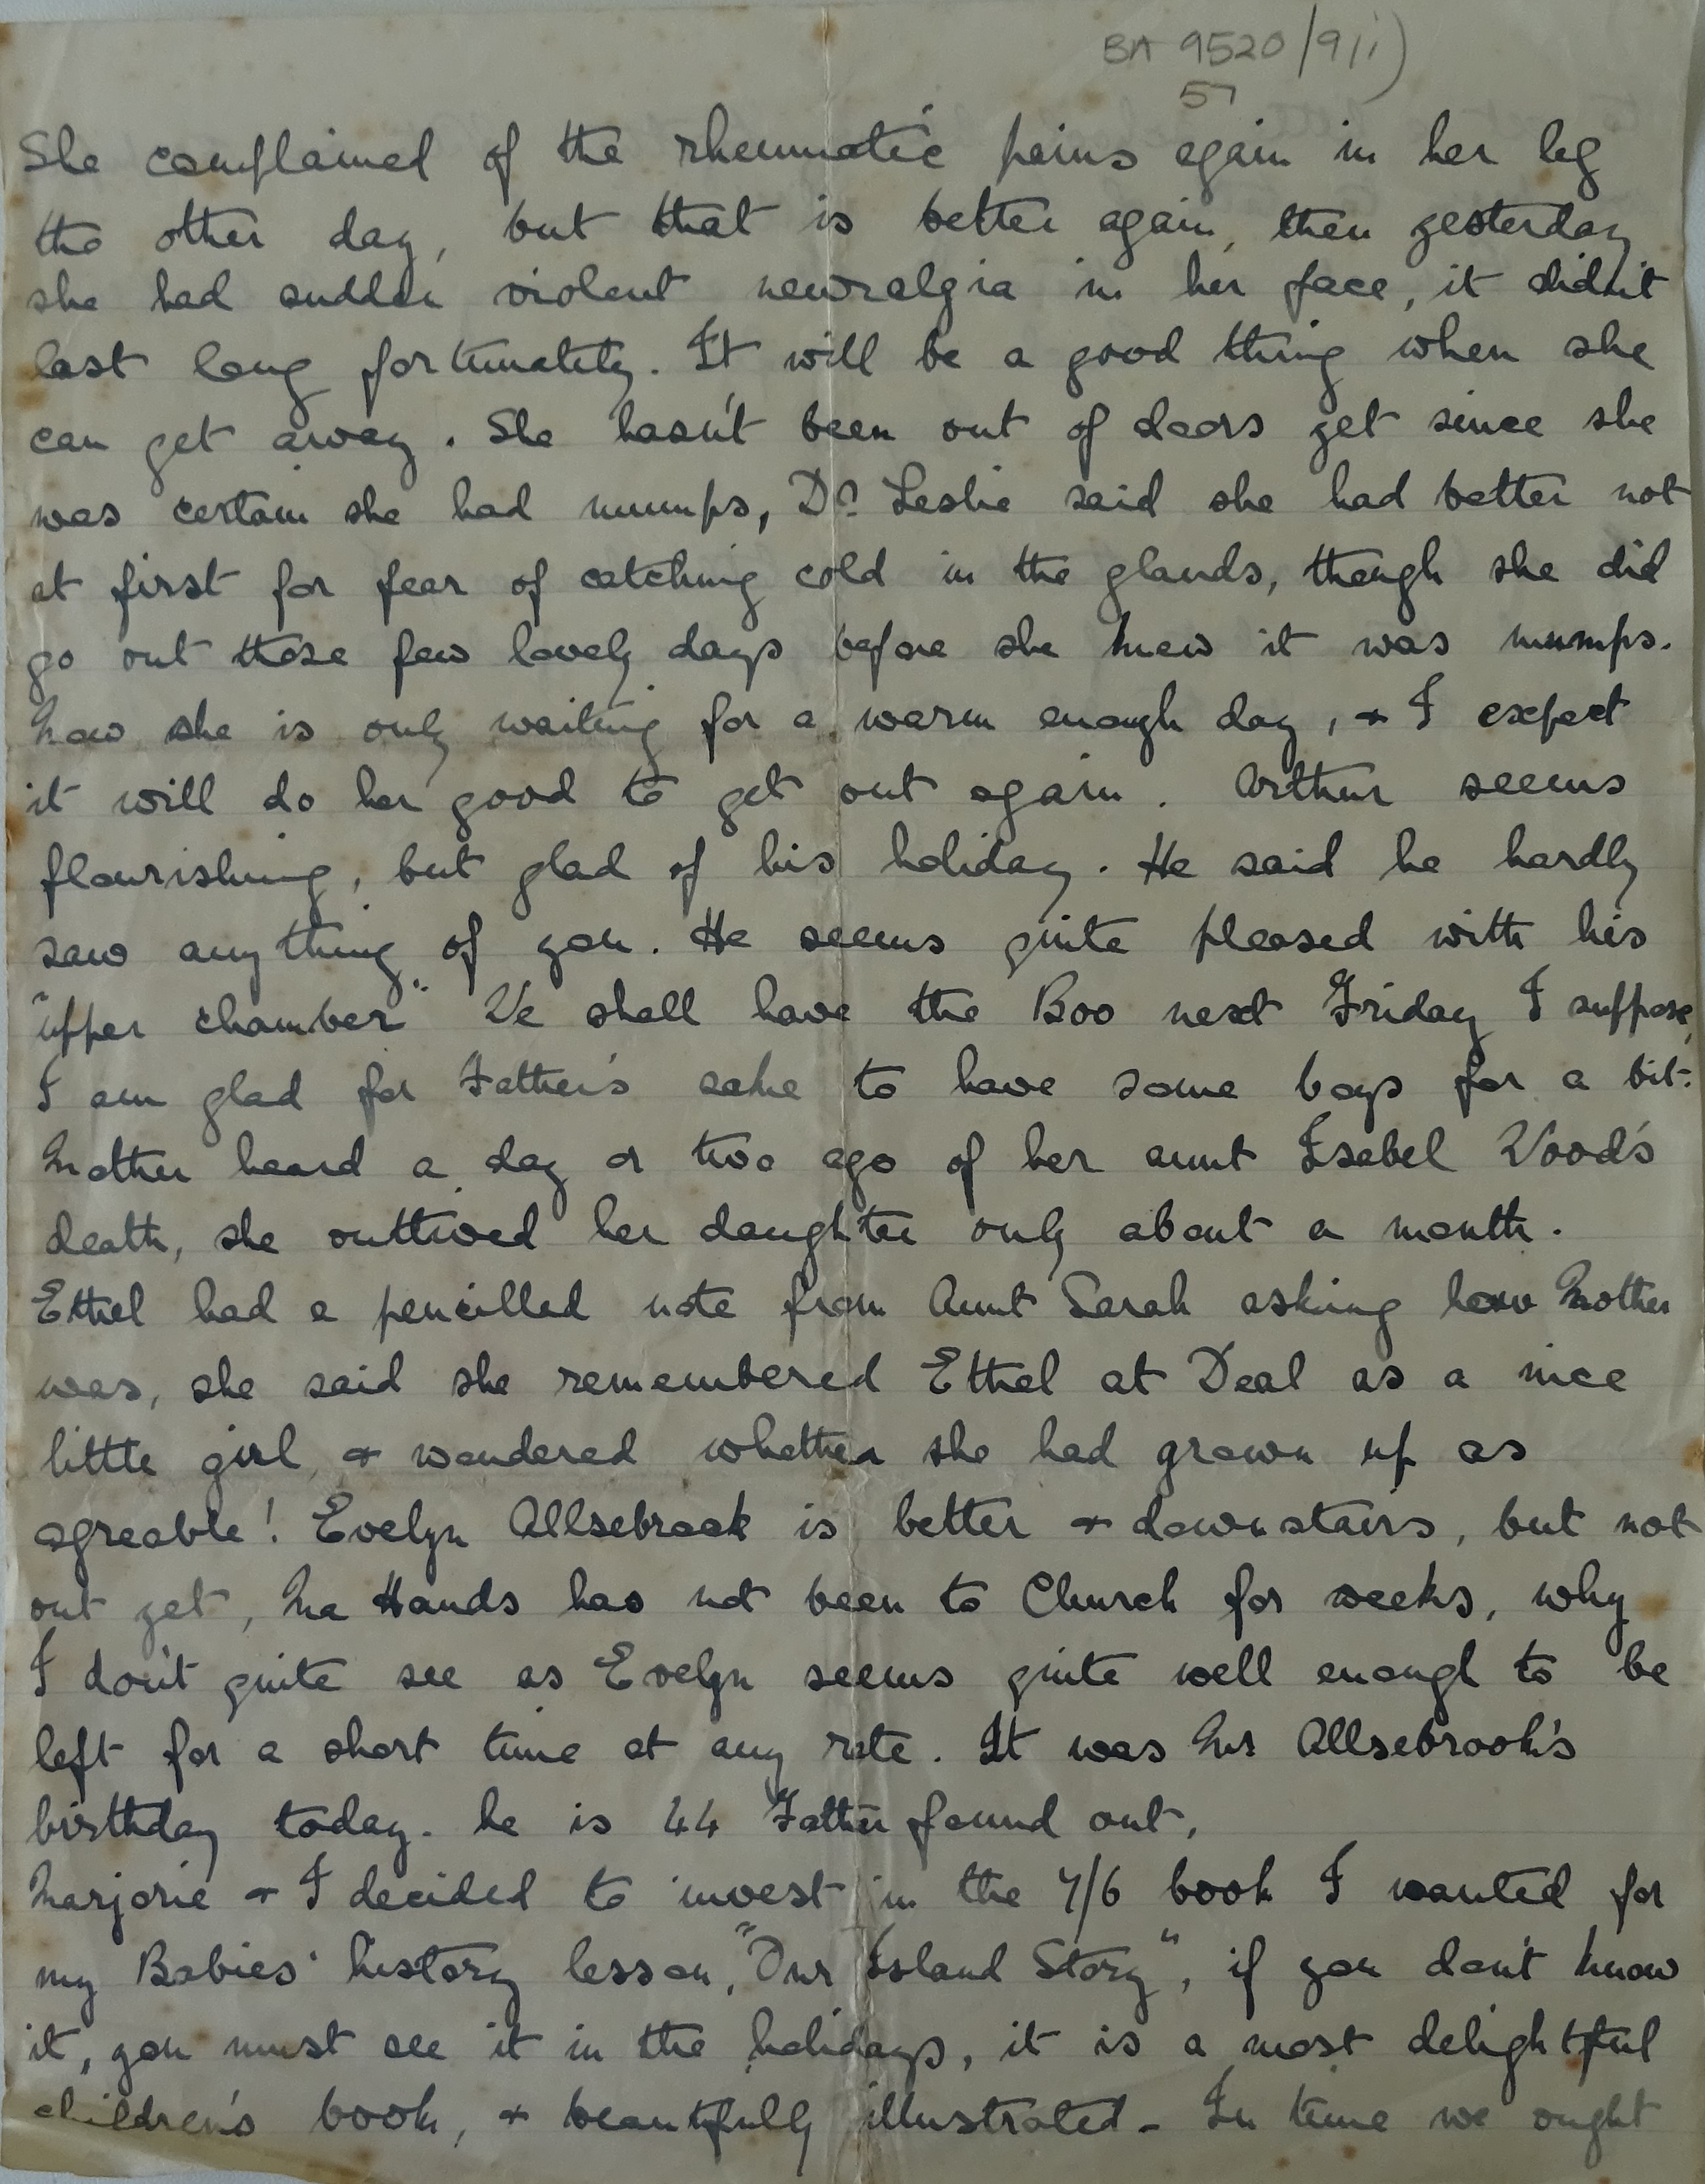 BA 9520/9(i)
57
She complained of the rheumatic pains again in her leg
the other day, but that is better again, then yesterday
she had sudden violent neuralgia in her face, it didn't
last long fortunately. It will be a good thing when she
can get away. She hasn't been out of doors yet since she
was certain she had mumps, Dr. Leslie said she had better not
at first for fear of catching cold in the glands, though she did
go out those few lovely days before she knew it was mumps.
Now she is only waiting for a warm enough day, & I expect
it will do her good to get out again. Arthur seems
flourishing, but glad of his holiday. He said he hardly
saw anything of you. He seems quite pleased with his
"upper chamber" We shall have the Boo next Friday I suppose,
I am glad for Father's sake to have some boys for a bit.
Mother heard a day or two ago of her aunt Isabel Wood's
death, she outlived her daughter only about a month.
Ethel had a pencilled note from Aunt Sarah asking how Mother
was, she said she remembered Ethel at Deal as a nice
little girl, & wondered whether she had grown up as
agreable! Evelyn Allsebrook is better & downstairs, but not
out yet, Ma Hands has not been to Church for weeks, why
I don't quite see as Evelyn seems quite well enough to be
left for a short time at any rate. It was Mr Allsebrook's
birthday today. he is 44 Father found out,
Marjorie & I decided to invest in the 7/6 book I wanted for
my Babies' history lesson, "Our Island Story", if you don't know
it, you must see it in the holidays, it is a most delightful
children's book, & beautifully illustrated - In time we ought